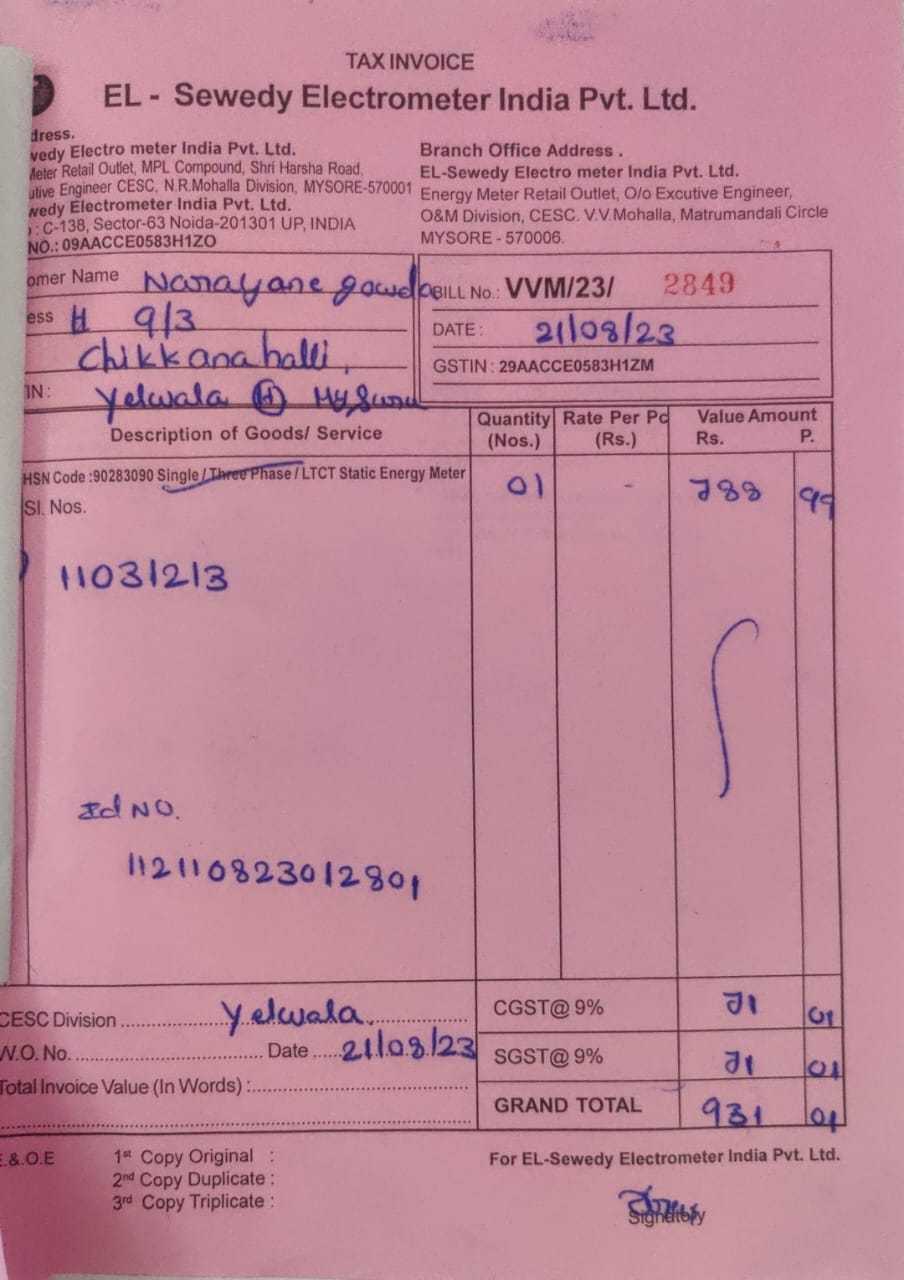 TAX INVOICE
EL - Sewedy Electrometer India Pvt. Ltd.
dress.
wedy Electro meter India Pvt. Ltd.
Meter Retail Outlet, MPL Compound, Shri Harsha Road,
utive Engineer CESC, N.R.Mohalla Division, MYSORE-570001
wedy Electrometer India Pvt. Ltd.
: C-138, Sector-63 Noida-201301 UP, INDIA
NO.: 09AACCE0583H1ZO
Branch Office Address .
EL-Sewedy Electro meter India Pvt. Ltd.
Energy Meter Retail Outlet, O/o Excutive Engineer,
O&M Division, CESC. V.V.Mohalla, Matrumandali Circle
MYSORE - 570006.
omer Name Narayane gowda
ess # 9/3
Chikkanahalli,
IN: Yelwala (H) Mysuru
BILL No.: VVM/23/ 2849
DATE : 21/08/23
GSTIN : 29AACCE0583H1ZM
Description of Goods/ Service Quantity (Nos.) Rate Per Pc (Rs.) Value Amount Rs. P.
HSN Code :90283090 Single / Three Phase / LTCT Static Energy Meter 01 - 788 99
Sl. Nos.
11031213
Id NO.
112110823012801
CESC Division Yelwala. CGST@ 9% 71 01
W.O. No. Date 21/08/23 SGST@ 9% 71 01
Total Invoice Value (In Words) : GRAND TOTAL 931 01
E.&.O.E 1st Copy Original :
2nd Copy Duplicate :
3rd Copy Triplicate :
For EL-Sewedy Electrometer India Pvt. Ltd.
Signatory